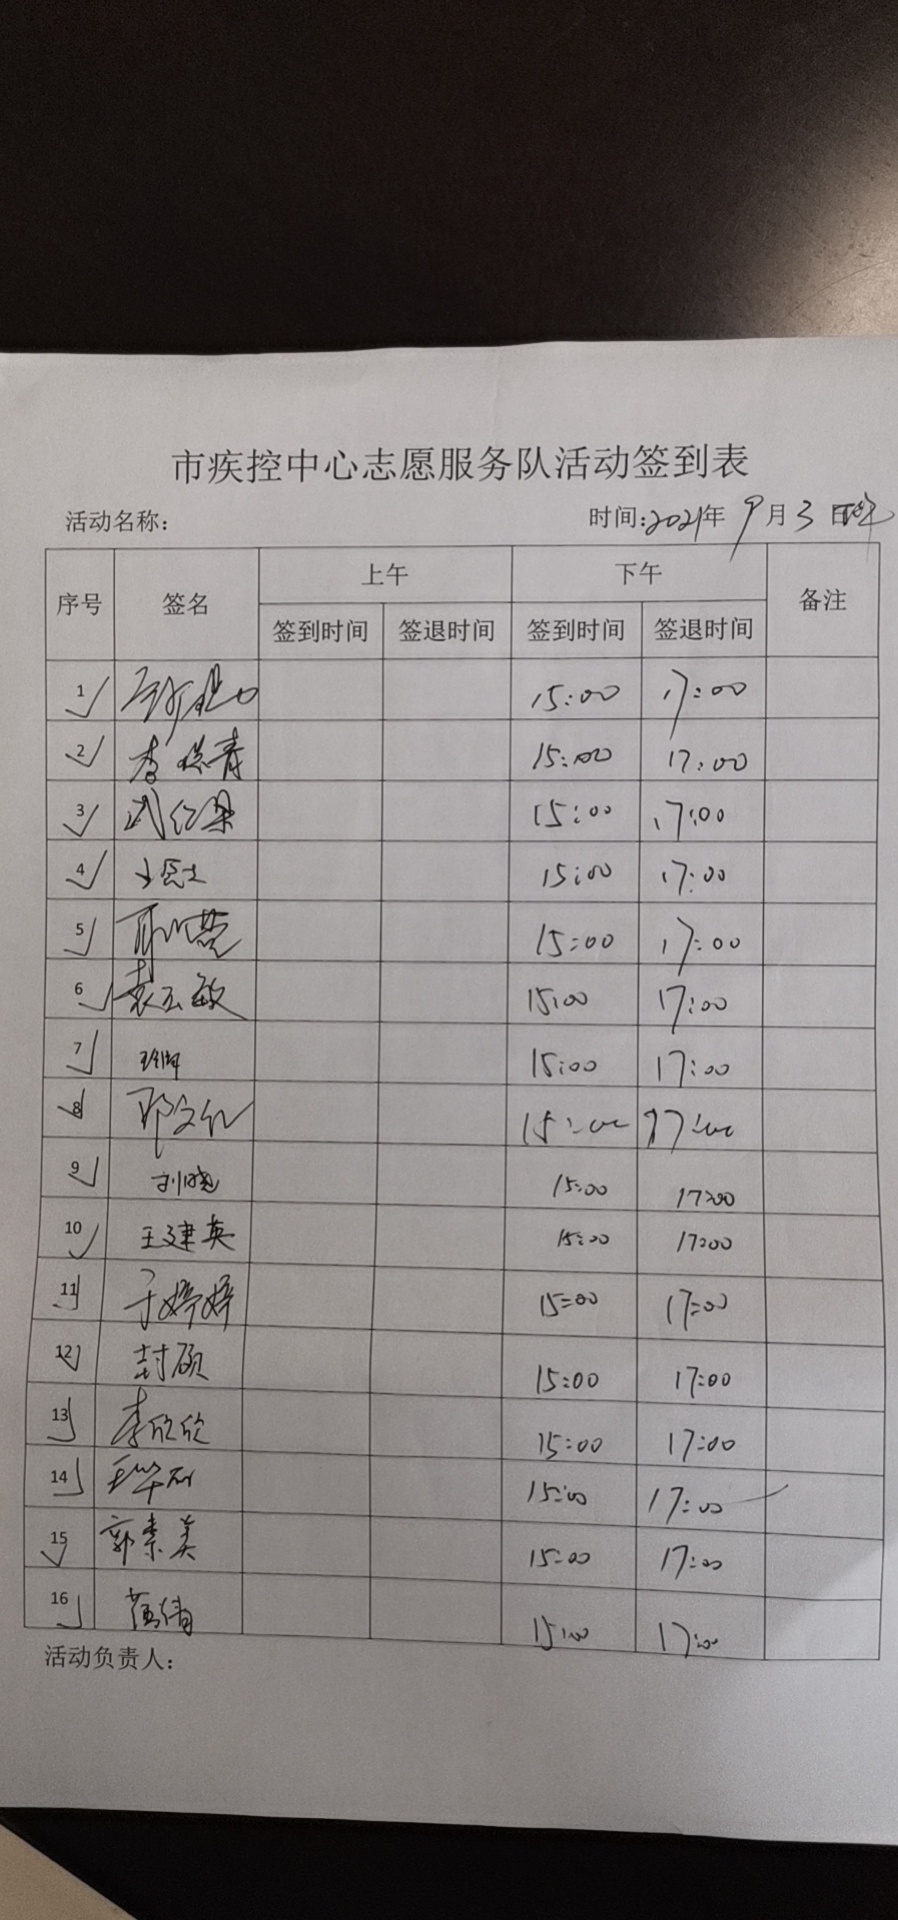 市疾控中心志愿服务队活动签到表
活动名称: 时间:2021年 9月 3 日
序号 签名 上午 下午 备注
签到时间 签退时间 签到时间 签退时间
1 15:00 17:00
2 李 青 15:00 17:00
3 武红梁 15:00 17:00
4 15:00 17:00
5 15:00 17:00
6 袁玉敏 15:00 17:00
7 15:00 17:00
8 邓文红 15:00 17:00
9 刘晓 15:00 17:00
10 王建英 15:00 17:00
11 于婷婷 15:00 17:00
12 封硕 15:00 17:00
13 李欣欣 15:00 17:00
14 15:00 17:00
15 郭素美 15:00 17:00
16 范倩 15:00 17:00
活动负责人: